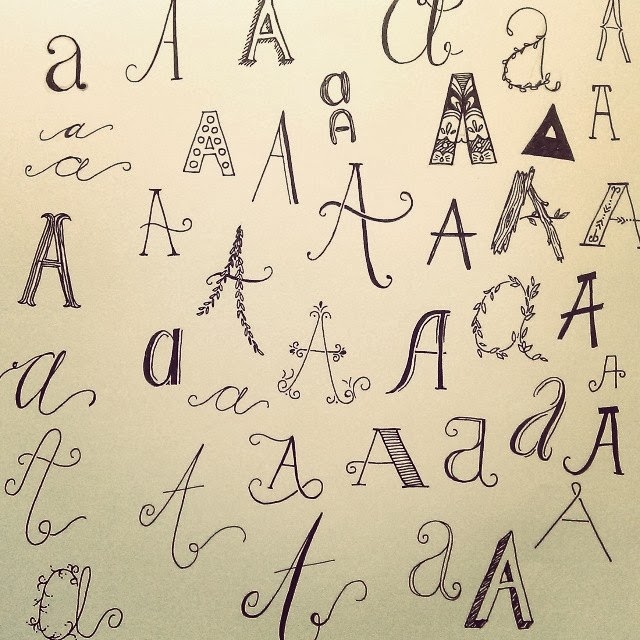 a A A a a A
a A A a A A A A
a
A A A A A A A
a A A a A A
a a a A
A A A A a A
a A a A